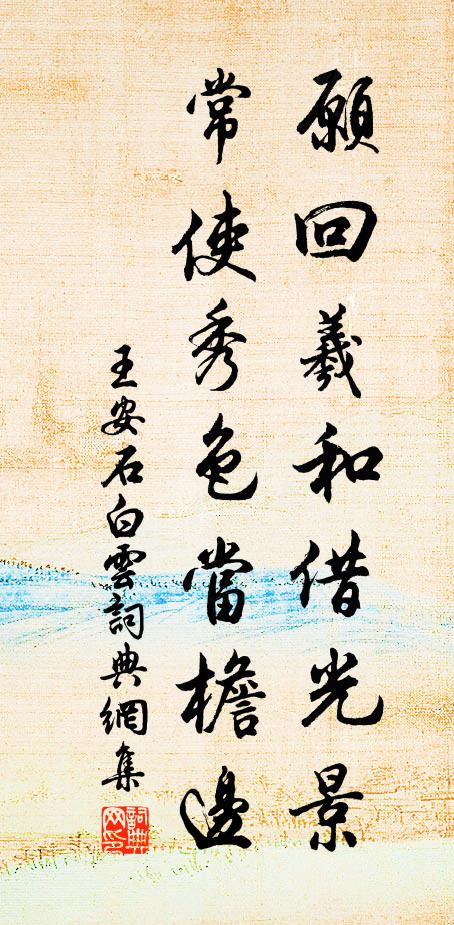 願回羲和借光景
常使秀色當檐邊
王安石白雲詞典網集
詞典網印